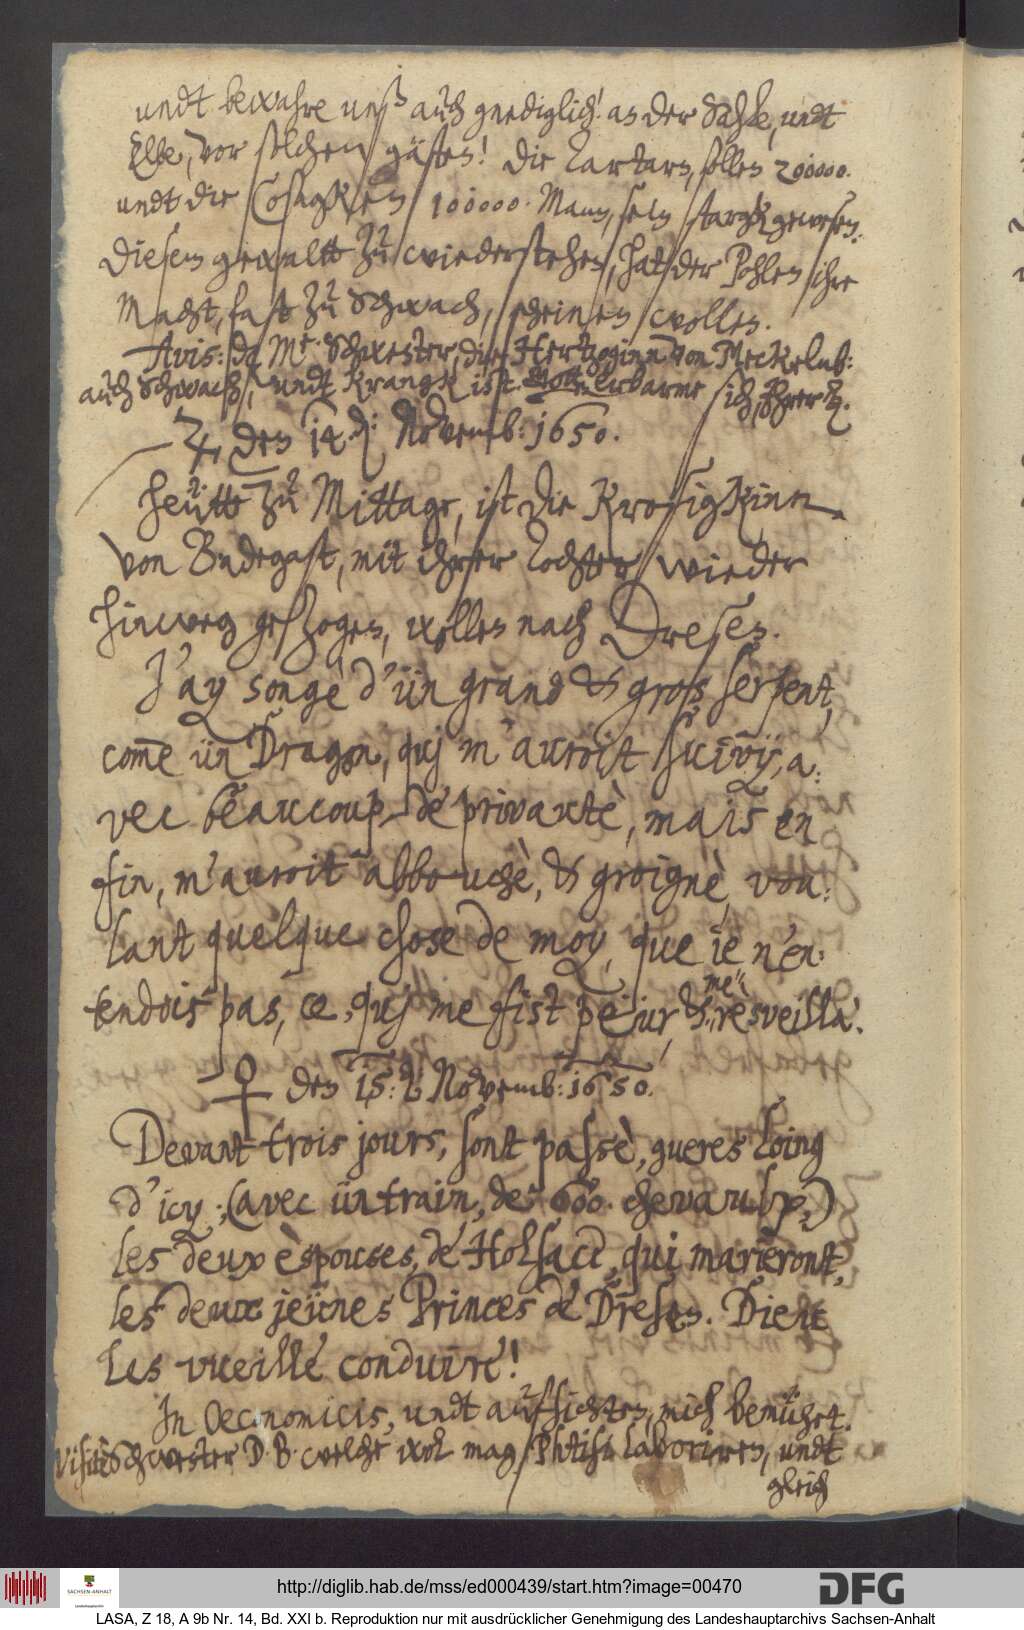 undt bewahre unß auch gnediglich! an der Sahle, undt
Elbe, vor solchen gästen! Die Tartarn, sollen 200000.
undt die Cosagken 100000. Mann, seín stargk gewesen.
Diesem gewaltt zu wiederstehen, hat der Pohlen ihre
Macht, fast zu schwach, scheinen wollen.
Avis: da Me. Schwester, die Hertzoginn von Meckelnb:
auch Schwach, undt Kranck ist. Gott erbarme sich, Ihrer
♃ den 14. Novemb: 1650.
Heütte zu Mittage, ist die Krosigkinn
von Badegast, mit ihrer Tochter wieder
hinweg gezogen, wollen nach Dresen.
J'ay songè d'ün grand & gross serpent,
come ün Dragon, quj m'auroit suivÿ, a:
vec beaucoup de privautè, mais en
fin, m'auroit abbouchè, & groignè, vou:
lant quelque chose de moy, que ie n'en:
tendois pas, ce, quj me fist peür, & me resveilla.
♀ den 15. Novemb: 1650.
Devant trois jours, sont passè, gueres loing
d'icy; (avec ün train, de 600. chevaulx,)
les deux èspouses, de Holsace, qui marieront,
les deux jeünes Princes de Dresen. Dieu
les vueille conduire!
In Oeconomicis, undt auffsichten, mich bemühet.
Visitè Schwester D. B. welche wol mag, Phtisi laboriren, undt
gleich
http://diglib.hab.de/mss/ed000439/start.htm?image=00470
SACHSEN-ANHALT
DFG
LASA, Z 18, A 9b Nr. 14, Bd. XXI b. Reproduktion nur mit ausdrücklicher Genehmigung des Landeshauptarchivs Sachsen-Anhalt